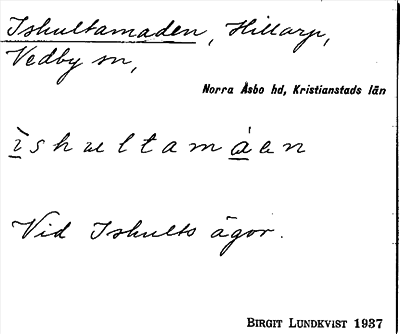 Ishultamaden, Hillarp,
Vedby sn,
Norra Åsbo hd, Kristianstads län
ìshultamàen
Vid Ishults ägor.
BIRGIT LUNDKVIST 1937